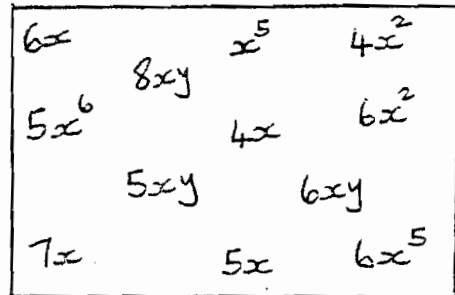 6x x⁵ 4x²
8xy
5x⁶ 4x 6x²
5xy 6xy
7x 5x 6x⁵